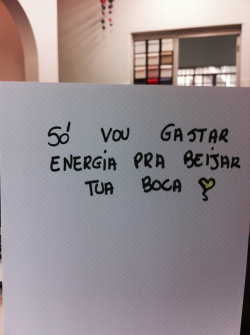 SÓ VOU GASTAR
ENERGIA PRA BEIJAR
TUA BOCA